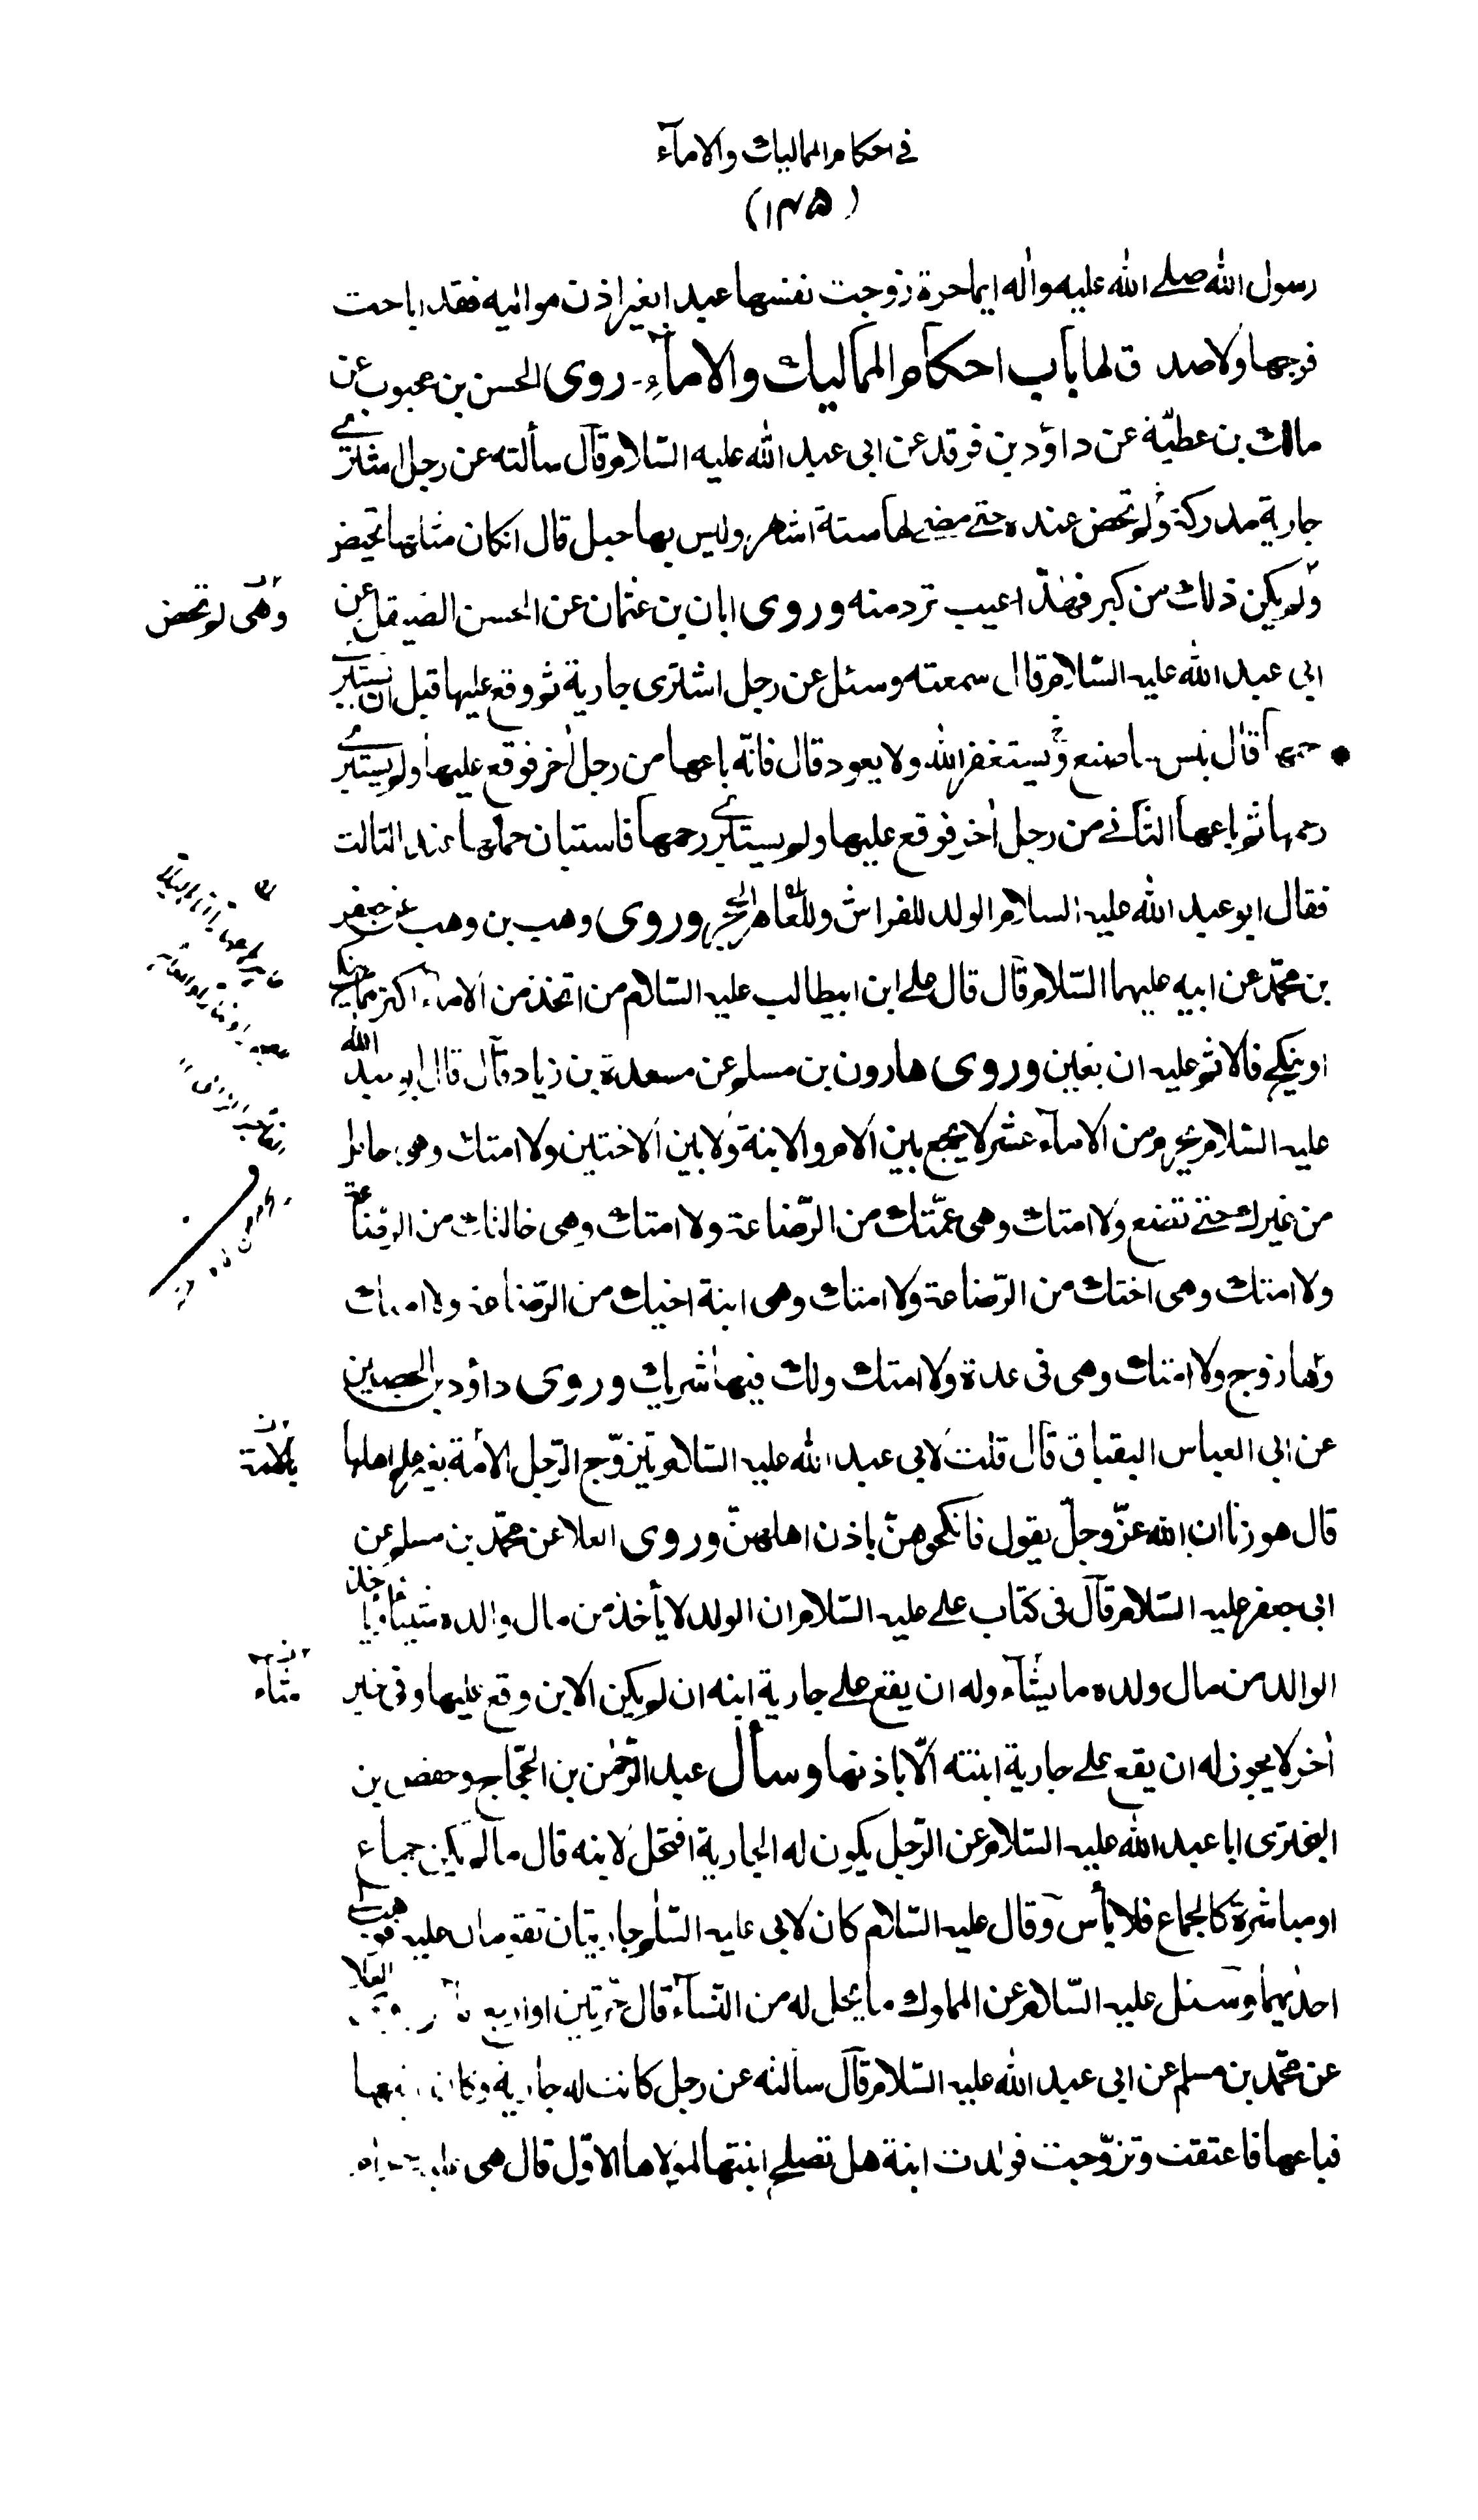 في احكام المماليك والامآء
(١٣٥)
رسول الله صلى الله عليه واله ايما حرة زوجت نفسها عبدا بغير اذن مواليه فقد اباحت
فرجها ولا صداق لها باب احكام المماليك والامآء - روى الحسن بن محبوب عن
مالك بن عطيّة عن داؤد بن فرقد عن ابى عبد الله عليه السّلام قال سألته عن رجل اشترى
جارية مدركة ولم تحض عنده حتى مضى لها ستة اشهر وليس بها حبل قال انكان مثلها تحيض
ولم يكن ذلك من كبر فهذا عيب ترد منه وروى ابان بن عثمان عن الحسن الصيقل عن
وهى لم تحض
ابى عبد الله عليه السّلام قال سمعته وسئل عن رجل اشترى جارية ثم وقع عليها قبل ان يستبرئ
رحمها قال بئس ما صنع ويستغفر الله ولا يعود قال فانّه باعها من رجل اٰخر فوقع عليها ولم يستبرئ
رحمها ثم باعها الثانى من رجل اٰخر فوقع عليها ولم يستبرئ رحمها فاستبان حملها عند الثالث
فقال ابو عبد الله عليه السلام الولد للفراش وللعاهر الحجر وروى وهب بن وهب عن جعفر
بن محمّد عن ابيه عليهما السّلام قال قال على ابن ابيطالب عليه السّلام من اتخذ من الامآء اكثر مما ينكح
او ينكح فالاثم عليه ان بغين وروى هارون بن مسلم عن مسعدة بن زياد قال قال ابو عبد الله
عليه السّلام يحرم من الامآء عشر لا يجمع بين الام والابنة ولا بين الاختين ولا امتك وهى حامل
من غيرك حتى تضع ولا امتك وهى عمّتك من الرّضاعة ولا امتك وهى خالتك من الرضاعة
ولا امتك وهى اختك من الرّضاعة ولا امتك وهى ابنة اخيك من الرّضاعة ولا امتك
ولها زوج ولا امتك وهى فى عدة ولا امتك ولك فيها شريك وروى داؤد بن الحصين
عن ابى العباس البقباق قال قلت لابى عبد الله عليه السّلام يتزوّج الرّجل الامة بغير علم اهلها
بالامة
قال هو زنا ان الله عزّ وجلّ يقول فانكحوهنّ باذن اهلهنّ وروى العلا عن محمّد بن مسلم عن
ابى جعفر عليه السّلام قال فى كتاب على عليه السّلام ان الولد لا يأخذ من مال والده شيئا ويأخذ
الوالد من مال ولده ما يشآء وله ان يقع على جارية ابنه ان لم يكن الابن وقع عليها وفى خبر
شآء
اٰخر لا يجوز له ان يقع على جارية ابنته الّا باذنها وسأل عبد الرّحمٰن بن الحجّاج وحفص بن
البخترى ابا عبد الله عليه السّلام عن الرّجل يكون له الجارية افتحل لابنه قال ما لم يكن جماع
او مباشرة كالجماع فلا بأس وقال عليه السّلام كان لابى عليه السّلم جاريتان تقومان عليه فوهب لى
احديهما وسئل عليه السّلام عن المملوك ما يحل له من النّسآء قال حرّتين او اربع العلا
عن محمّد بن مسلم عن ابى عبد الله عليه السّلام قال سألته عن رجل كانت له جارية وكان
فباعها فاعتقت وتزوّجت فولدت ابنة هل تصلح ابنتها لمولاها الاوّل قال هى